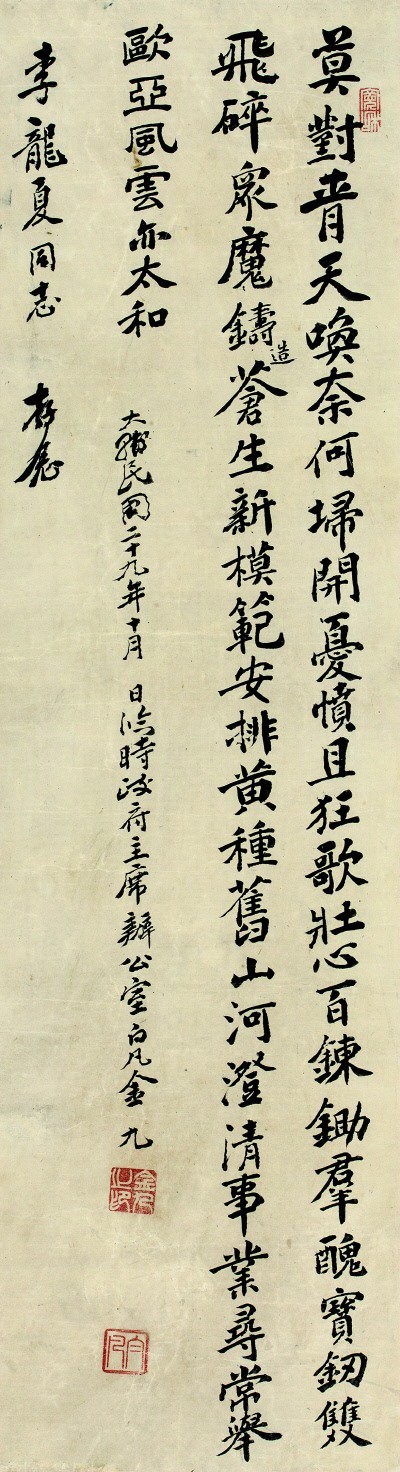 莫對青天喚奈何埽開憂憤且狂歌壯心百鍊鋤羣醜寶釰雙
飛碎眾魔鑄造蒼生新模範安排黄種舊山河澄清事業尋常舉
歐亞風雲亦太和
大韓民國二十九年十月 日臨時政府主席辦公室白凡金九
金九之印
白凡
李龍夏同志 存念